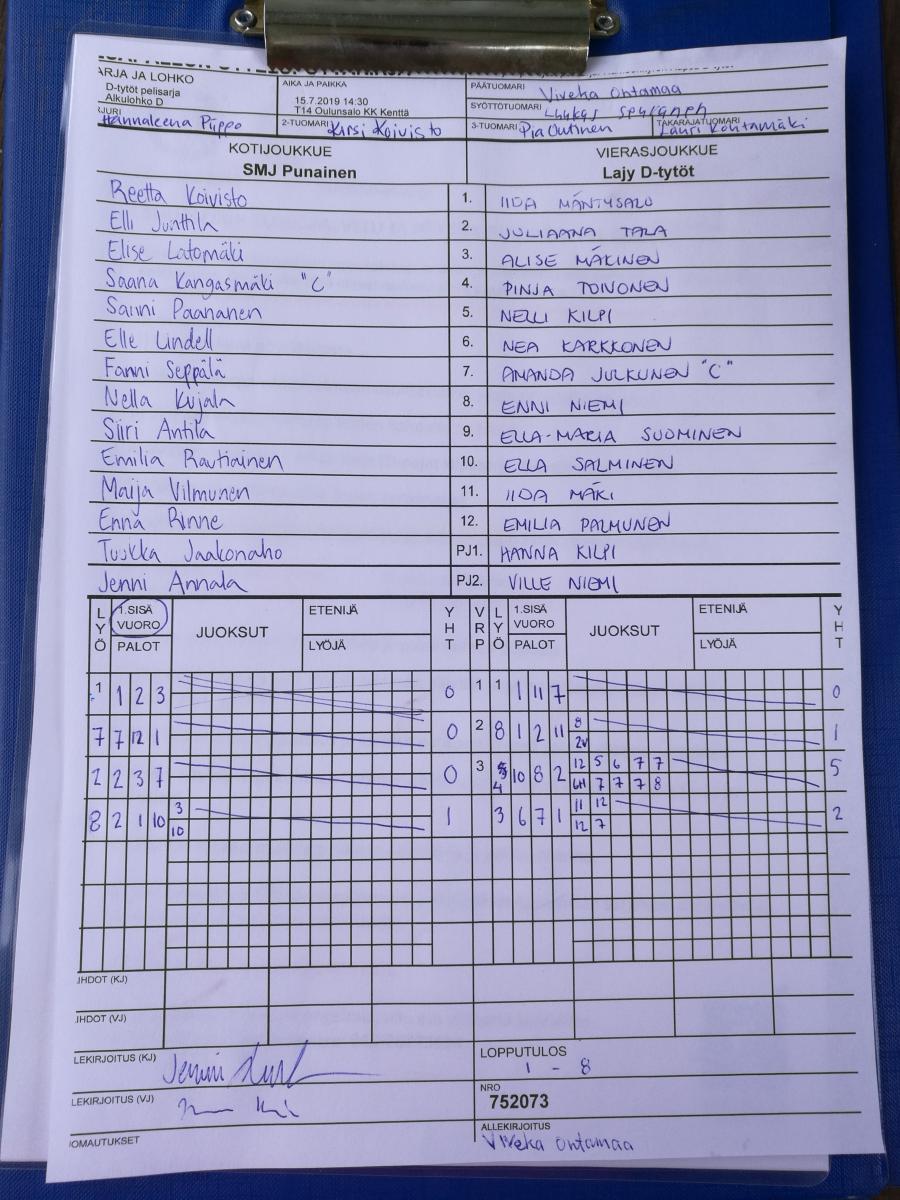 ARJA JA LOHKO
D-tytöt pelisarja
Alkulohko D
AIKA JA PAIKKA
15.7.2019 14:30
T14 Oulunsalo KK Kenttä
PÄÄTUOMARI Viveka Ohtamaa
SYÖTTÖTUOMARI
Hannaleena Piippo
2-TUOMARI Kirsi Koivisto
3-TUOMARI Pia Outinen
TAKARAJATUOMARI Lauri Kohtamäki
KOTIJOUKKUE VIERASJOUKKUE
SMJ Punainen Lajy D-tytöt
Reetta Koivisto 1. IIDA MÄNTYSALO
Elli Junttila 2. JULIAANA TALA
Elise Latomäki 3. ALISE MÄKINEN
Saana Kangasmäki "C" 4. PINJA TOIVONEN
Sanni Paananen 5. NELLI KILPI
Elle Lindell 6. NEA KARKKONEN
Fanni Seppälä 7. AMANDA JULKUNEN "C"
Nella Kujala 8. ENNI NIEMI
Siiri Antila 9. ELLA-MARIA SUOMINEN
Emilia Rautiainen 10. ELLA SALMINEN
Maija Vilmunen 11. IIDA MÄKI
Enna Rinne 12. EMILIA PALMUNEN
Tuukka Jaakonaho PJ1. HANNA KILPI
Jenni Annala PJ2. VILLE NIEMI
LYÖ 1.SISÄ VUORO PALOT JUOKSUT ETENIJÄ LYÖJÄ YHT VRP LYÖ 1.SISÄ VUORO PALOT JUOKSUT ETENIJÄ LYÖJÄ YHT
1 1 2 3 0 1 1 1 11 7 0
7 7 12 1 0 2 8 1 2 11 8 1
2v
2 2 3 7 0 3 4 10 8 2 12 5 6 7 7 5
6H 7 7 7 8
8 2 1 10 3 1 3 6 7 1 11 12 2
10 12 7
IHDOT (KJ)
IHDOT (VJ)
LEKIRJOITUS (KJ) Jenni
LOPPUTULOS
1 - 8
LEKIRJOITUS (VJ)
NRO
752073
OMAUTUKSET
ALLEKIRJOITUS
Viveka Ohtamaa